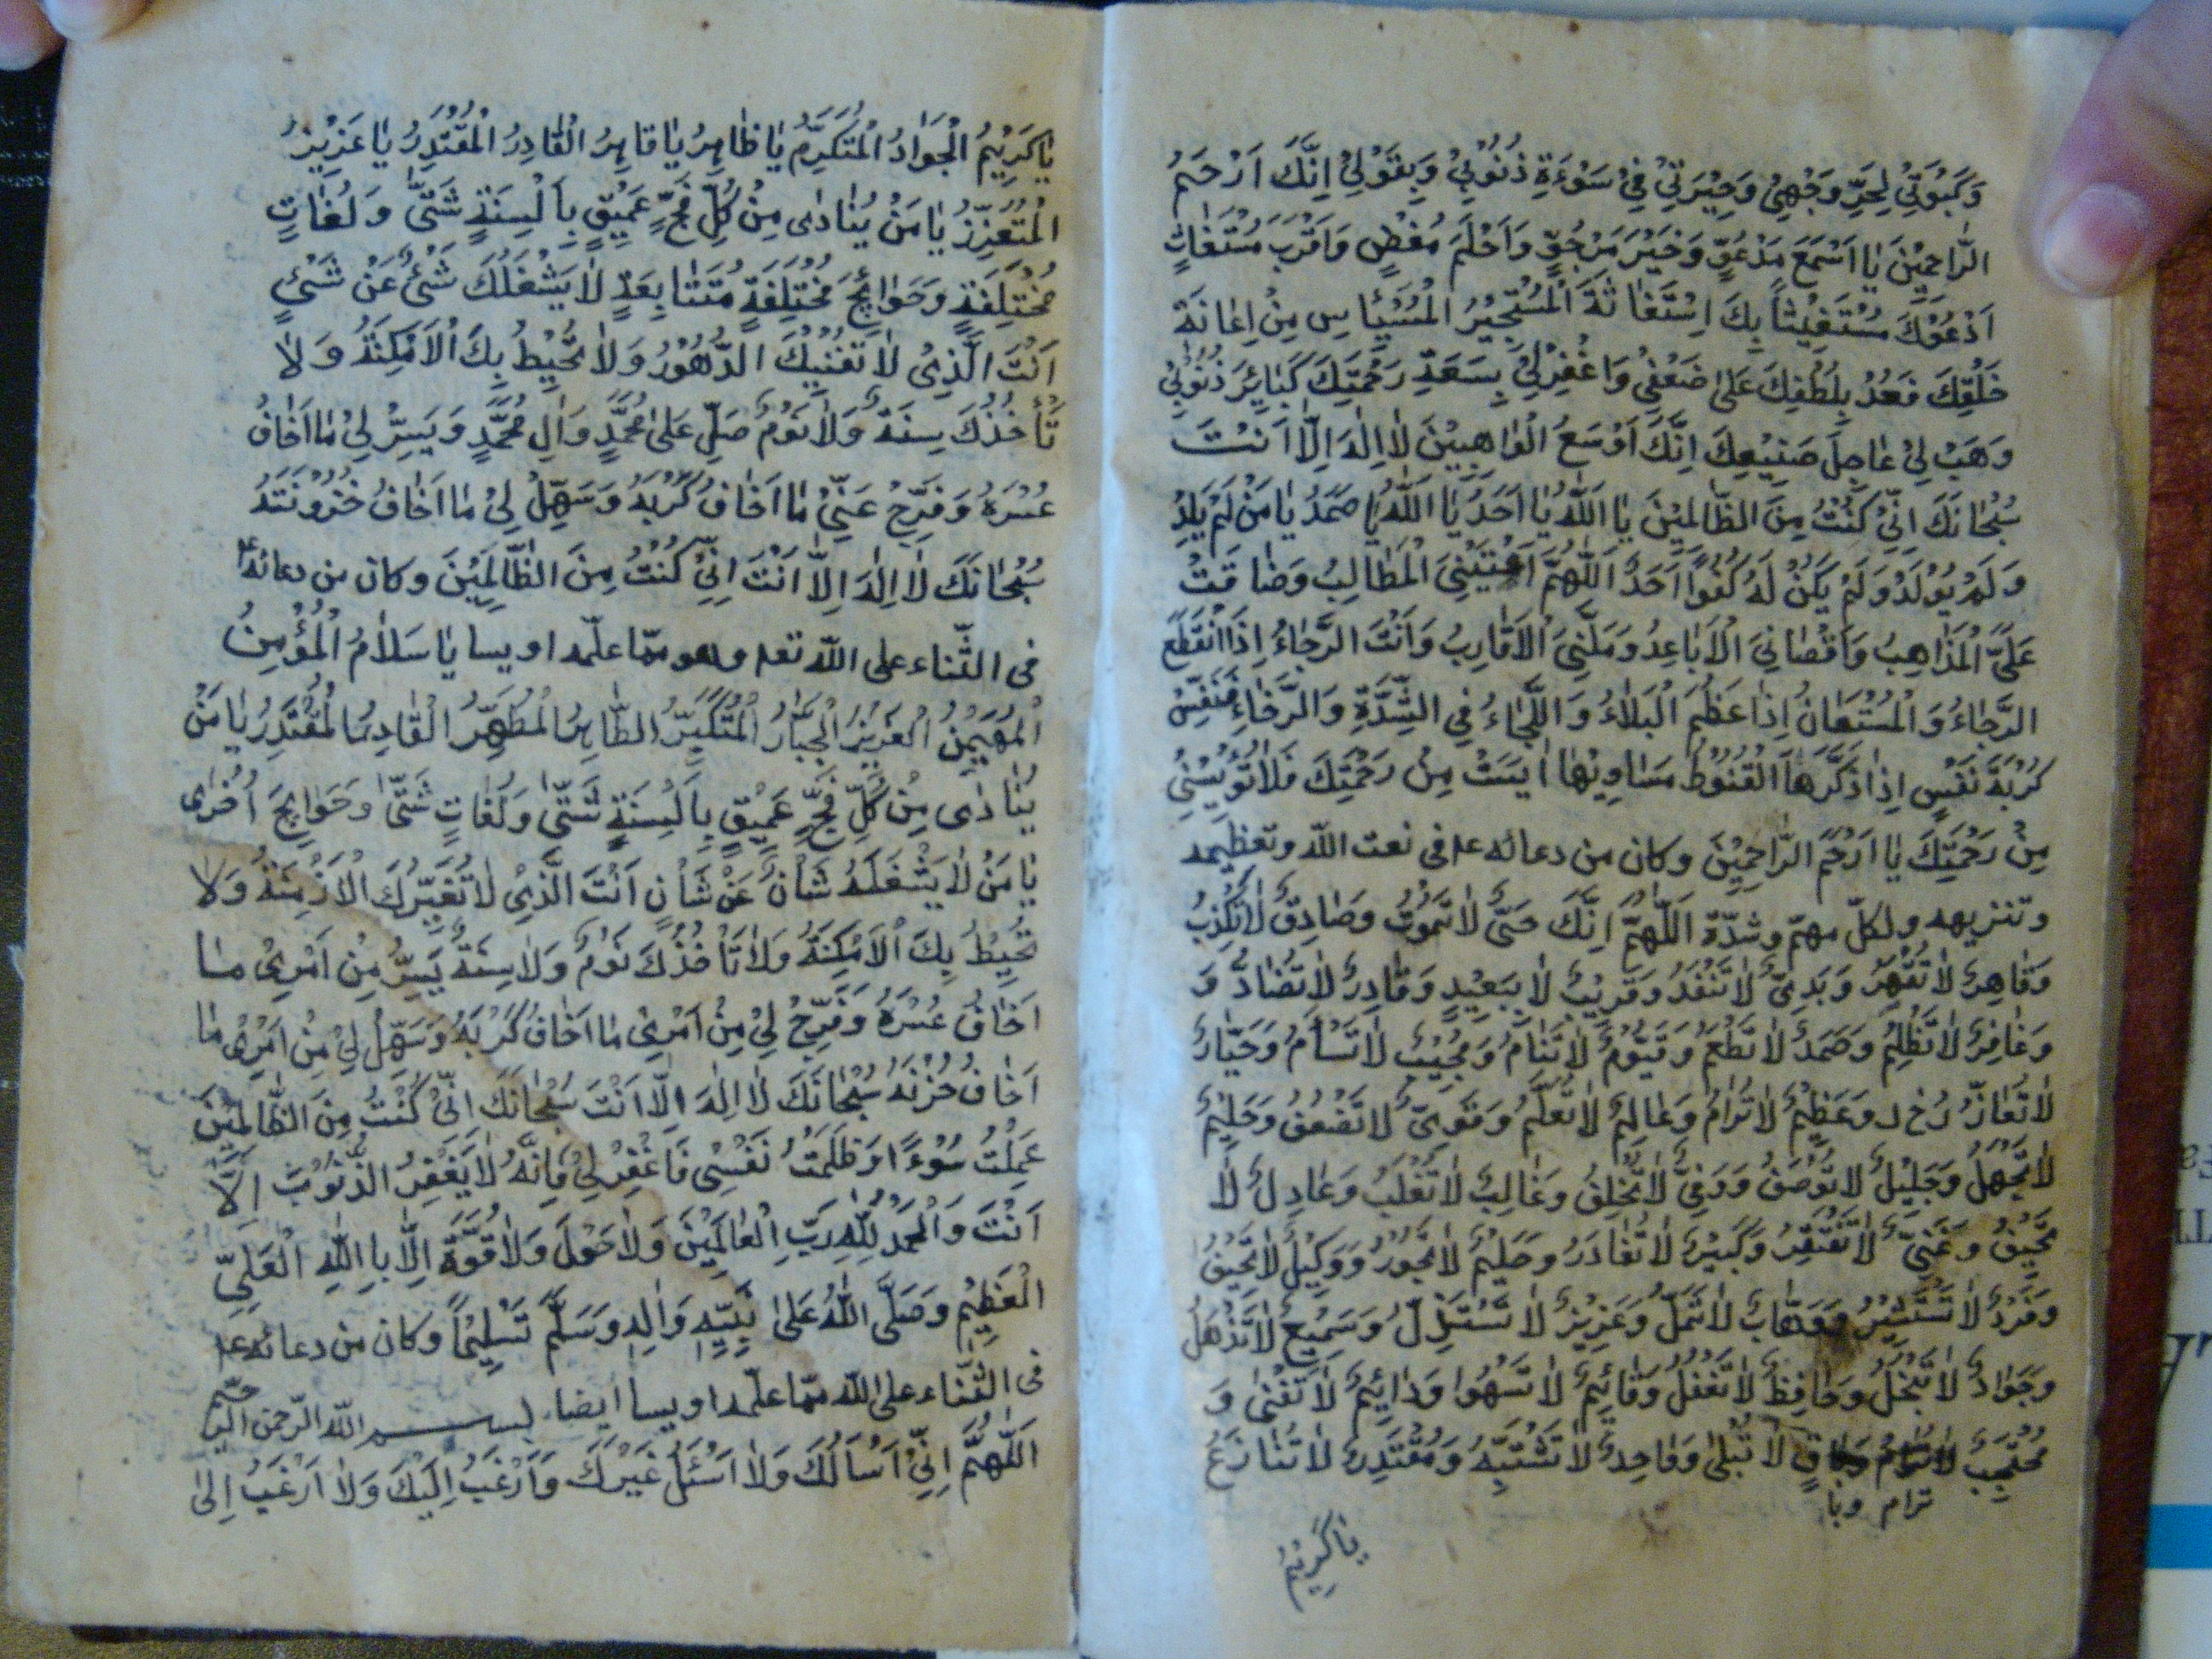 وَكَبْوَتِيْ لِحَرِّ وَجْهِيْ وَحِيْرَتِيْ فِيْ سَوْءَةِ ذُنُوْبِيْ وَبِقَوْلِيْ اِنَّكَ اَرْحَمُ
الرَّاحِمِيْنَ يٰا اَسْمَعَ مَدْعُوٍّ وَخَيْرَ مَرْجُوٍّ وَاَحْلَمَ مُغْضٍ وَاَقْرَبَ مُسْتَغٰاثٍ
اَدْعُوْكَ مُسْتَغِيْثاً بِكَ اِسْتَغٰاثَةَ الْمُسْتَجِيْرِ الْمُسْتَيْاِسِ مِنْ اِغٰاثَةِ
خَلْقِكَ فَعُدْ بِلُطْفِكَ عَلىٰ ضَعْفِيْ وَاغْفِرْلِيْ بِسَعَةِ رَحْمَتِكَ كَبٰائِرَ ذُنُوْبِيْ
وَهَبْ لِيْ عٰاجِلَ صَنِيْعِكَ اِنَّكَ اَوْسَعُ الْوٰاهِبِيْنَ لٰا اِلٰهَ اِلَّا اَنْتَ
سُبْحٰانَكَ اِنِّيْ كُنْتُ مِنَ الظّٰالِمِيْنَ يٰا اَللّٰهُ يٰا اَحَدُ يٰا اَللّٰهُ يٰا صَمَدُ يٰا مَنْ لَمْ يَلِدْ
وَلَمْ يُوْلَدْ وَلَمْ يَكُنْ لَهُ كُفُوًا اَحَدٌ اَللّٰهُمَّ اَعْيَتْنِيَ الْمَطٰالِبُ وَضٰاقَتْ
عَلَيَّ الْمَذٰاهِبُ وَاَقْصٰانِيَ الْاَبٰاعِدُ وَمَلَّنِيَ الْاَقٰارِبُ وَاَنْتَ الرَّجٰاءُ اِذَا انْقَطَعَ
الرَّجٰاءُ وَالْمُسْتَعٰانُ اِذٰا عَظُمَ الْبَلٰاءُ وَاللَّجٰاءُ فِي الشِّدَّةِ وَالرَّخٰاءِ فَنَفِّسْ
كُرْبَةَ نَفْسٍ اِذٰا ذَكَّرَهَا الْقُنُوْطُ مَسٰاوِيْهٰا اَيِسَتْ مِنْ رَحْمَتِكَ فَلٰا تُؤْيِسْنِيْ
مِنْ رَحْمَتِكَ يٰا اَرْحَمَ الرّٰاحِمِيْنَ وكان من دعائه ع في نعت اللّه وتعظيمه
وتنزيهه ولكلّ مهمّ وشدّة اَللّٰهُمَّ اِنَّكَ حَيٌّ لٰا تَمُوْتُ وَصٰادِقٌ لٰا تَكْذِبُ
وَقٰاهِرٌ لٰا تُقْهَرُ وَبَدِئٌ لٰا تَنْفَدُ وَقَرِيْبٌ لٰا بِبَعِيْدٍ وَقٰادِرٌ لٰا تُضٰادُّ وَ
وَغٰافِرٌ لٰا تَظْلِمُ وَصَمَدٌ لٰا تُطْعَمُ وَقَيُّوْمٌ لٰا تَنٰامُ وَمُجِيْبٌ لٰا تَسْأَمُ وَجَبّٰارٌ
لٰا تُعٰانُ وَعَظِيْمٌ لٰا تُرٰامُ وَعٰالِمٌ لٰا تُعَلَّمُ وَقَوِيٌّ لٰا تَضْعُفُ وَحَلِيْمٌ
لٰا تَجْهَلُ وَجَلِيْلٌ لٰا تُوْصَفُ وَوَفِيٌّ لٰا تُخْلِفُ وَغٰالِبٌ لٰا تُغْلَبُ وَعٰادِلٌ لٰا
تَحِيْفُ وَغَنِيٌّ لٰا تَفْتَقِرُ وَكَبِيْرٌ لٰا تُغٰادِرُ وَحَكِيْمٌ لٰا تَجُوْرُ وَوَكِيْلٌ لٰا تَحِيْفُ
وَفَرْدٌ لٰا تَسْتَشِيْرُ وَوَهّٰابٌ لٰا تَمَلُّ وَعَزِيْزٌ لٰا تُسْتَذَلُّ وَسَمِيْعٌ لٰا تَذْهَلُ
وَجَوٰادٌ لٰا تَبْخَلُ وَحٰافِظٌ لٰا تَغْفُلُ وَقٰائِمٌ لٰا تَسْهُوا وَدٰائِمٌ لٰا تَفْنٰى وَ
مُحْتَجِبٌ لٰا تُرٰامُ وَبٰاقٍ لٰا تُبْلىٰ وَوٰاحِدٌ لٰا تُشْتَبَهُ وَمُقْتَدِرٌ لٰا تُنٰازَعُ
ترام وبا
يٰا كَرِيْمُ
يٰا كَرِيْمُ الْجَوٰادُ الْمُتَكَرِّمُ يٰا ظٰاهِرُ يٰا قٰاهِرُ الْقٰادِرُ الْمُقْتَدِرُ يٰا عَزِيْزُ
الْمُتَعَزِّزُ يٰا مَنْ يُنٰادٰى مِنْ كُلِّ فَجٍّ عَمِيْقٍ بِاَلْسِنَةٍ شَتّٰى وَلُغٰاتٍ
مُخْتَلِفَةٍ وَحَوٰائِجَ مُخْتَلِفَةٍ مُتَتٰابِعَةٍ لٰا يَشْغَلُكَ شَيْءٌ عَنْ شَيْءٍ
اَنْتَ الَّذِيْ لٰا تُفْنِيْكَ الدُّهُوْرُ وَلٰا تُحِيْطُ بِكَ الْاَمْكِنَةُ وَلٰا
تَأْخُذُكَ سِنَةٌ وَلٰا نَوْمٌ صَلِّ عَلىٰ مُحَمَّدٍ وَاٰلِ مُحَمَّدٍ وَيَسِّرْ لِيْ مٰا اَخٰافُ
عُسْرَهُ وَفَرِّجْ عَنِّيْ مٰا اَخٰافُ كَرْبَهُ وَسَهِّلْ لِيْ مٰا اَخٰافُ حُزُوْنَتَهُ
سُبْحٰانَكَ لٰا اِلٰهَ اِلَّا اَنْتَ اِنِّيْ كُنْتُ مِنَ الظّٰالِمِيْنَ وكان من دعائه ع
فى الثّناء على اللّه تعه وهو ممّا علّمه اويسا يٰا سَلٰامُ الْمُؤْمِنُ
الْمُهَيْمِنُ الْعَزِيْزُ الْجَبّٰارُ الْمُتَكَبِّرُ الطّٰاهِرُ الْمُطَهِّرُ الْقٰادِرُ الْمُقْتَدِرُ يٰا مَنْ
يُنٰادٰى مِنْ كُلِّ فَجٍّ عَمِيْقٍ بِاَلْسِنَةٍ شَتّٰى وَلُغٰاتٍ شَتّٰى وَحَوٰائِجَ اُخْرٰى
يٰا مَنْ لٰا يَشْغَلُهُ شَأْنٌ عَنْ شَأْنٍ اَنْتَ الَّذِيْ لٰا تُغَيِّرُكَ الْاَزْمِنَةُ وَلٰا
تُحِيْطُ بِكَ الْاَمْكِنَةُ وَلٰا تَأْخُذُكَ نَوْمٌ وَلٰا سِنَةٌ يَسِّرْ مِنْ اَمْرِيْ مٰا
اَخٰافُ عُسْرَهُ وَفَرِّجْ لِيْ مِنْ اَمْرِيْ مٰا اَخٰافُ كَرْبَهُ وَسَهِّلْ لِيْ مِنْ اَمْرِيْ مٰا
اَخٰافُ حُزْنَهُ سُبْحٰانَكَ لٰا اِلٰهَ اِلَّا اَنْتَ سُبْحٰانَكَ اِنِّيْ كُنْتُ مِنَ الظّٰالِمِيْنَ
عَمِلْتُ سُوْءًا وَظَلَمْتُ نَفْسِيْ فَاغْفِرْ لِيْ فَاِنَّهُ لٰا يَغْفِرُ الذُّنُوْبَ اِلَّا
اَنْتَ وَالْحَمْدُ لِلّٰهِ رَبِّ الْعٰالَمِيْنَ وَلٰا حَوْلَ وَلٰا قُوَّةَ اِلَّا بِاللّٰهِ الْعَلِيِّ
الْعَظِيْمِ وَصَلَّى اللّٰهُ عَلىٰ نَبِيِّهِ وَاٰلِهِ وَسَلَّمَ تَسْلِيْماً وكان من دعائه ع
فى الثّناء على اللّه ممّا علّمه اويسا ايضا بسم اللّه الرّحمن الرّحيم
اَللّٰهُمَّ اِنِّيْ اَسْاَلُكَ وَلٰا اَسْئَلُ غَيْرَكَ وَاَرْغَبُ اِلَيْكَ وَلٰا اَرْغَبُ اِلىٰ